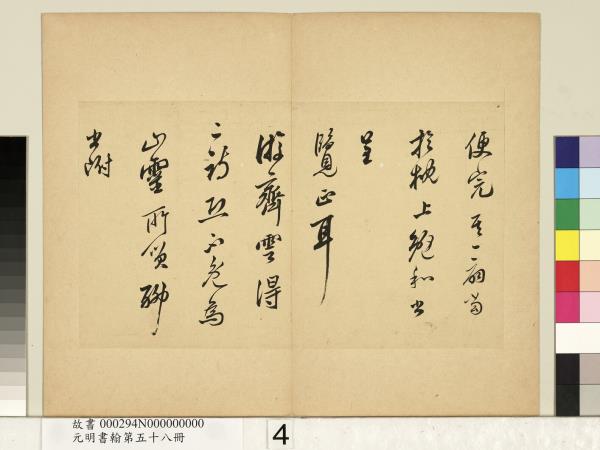 便完其一扇當
於枕上勉和書
呈
覽正耳
游齊雲得
二詩殊不免為
山靈所笑聊
書附
故書 000294N000000000
元明書翰第五十八冊
4